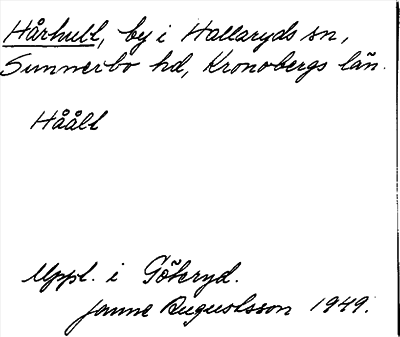 Hårhult, by i Hallaryds sn,
Sunnerbo hd, Kronobergs län.
Håålt
Uppl. i Göteryd.
Janne Augustsson 1949.